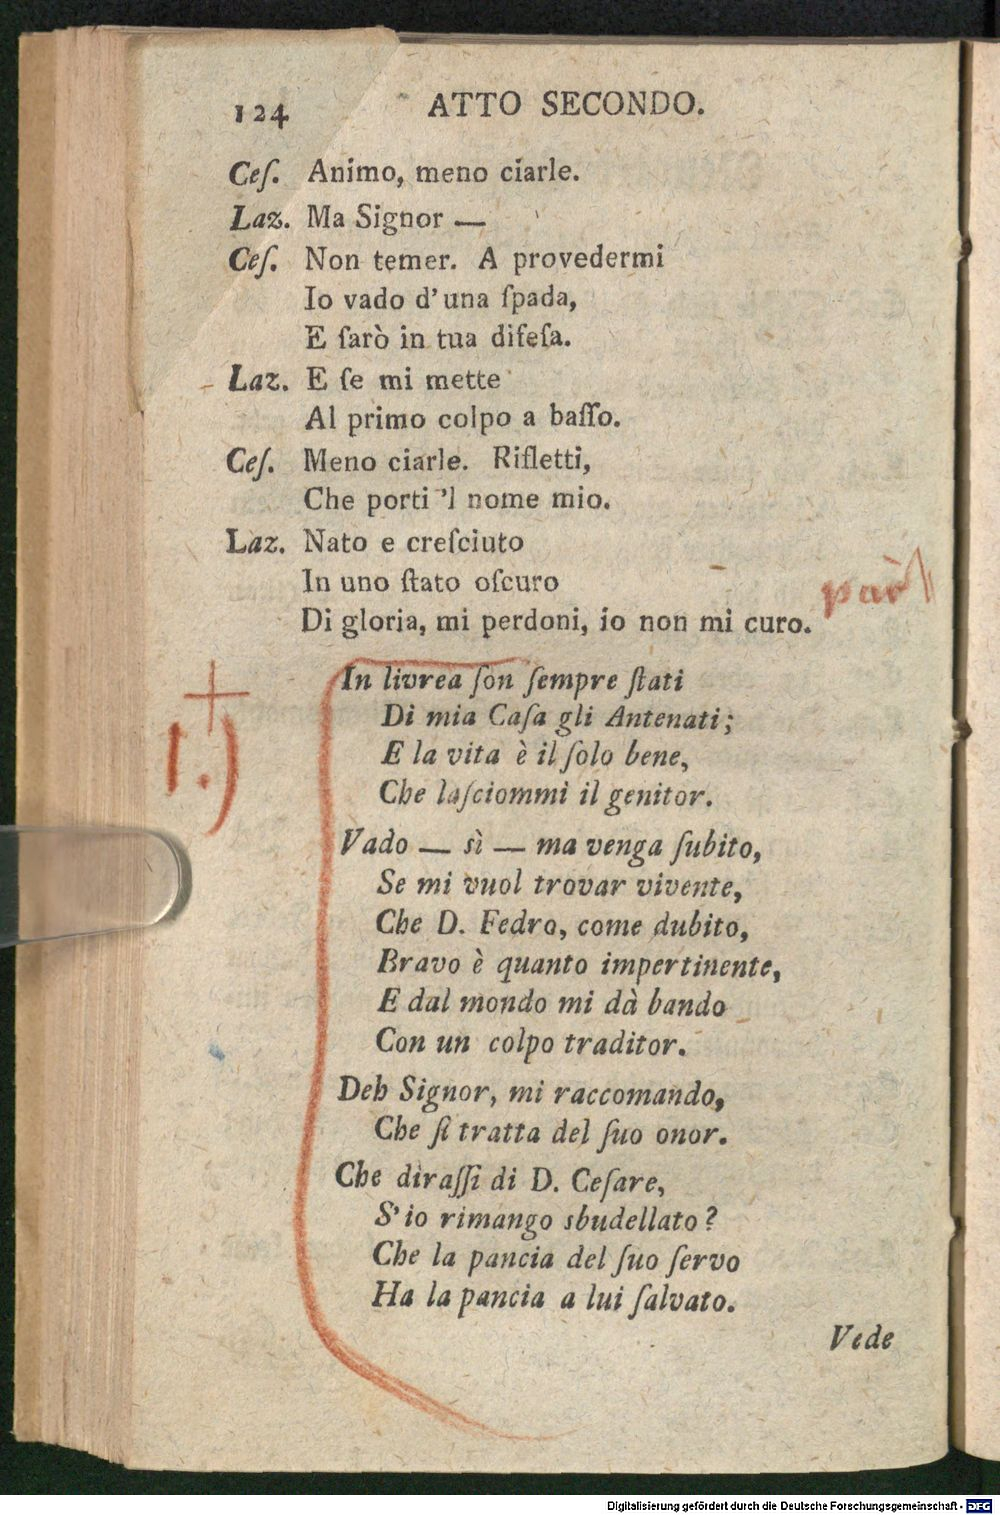 124 ATTO SECONDO.
Ceſ. Animo, meno ciarle.
Laz. Ma Signor —
Ceſ. Non temer. A provedermi
Io vado d'una ſpada,
E ſarò in tua difeſa.
Laz. E ſe mi mette
Al primo colpo a baſſo.
Ceſ. Meno ciarle. Rifletti,
Che porti 'l nome mio.
Laz. Nato e creſciuto
In uno ſtato oſcuro
Di gloria, mi perdoni, io non mi curo.
In livrea ſon ſempre ſtati
Di mia Caſa gli Antenati;
E la vita è il ſolo bene,
Che laſciommi il genitor.
1.)
Vado — sì — ma venga ſubito,
Se mi vuol trovar vivente,
Che D. Fedro, come dubito,
Bravo è quanto impertinente,
E dal mondo mi dà bando
Con un colpo traditor.
Deh Signor, mi raccomando,
Che ſi tratta del ſuo onor.
Che diraſſi di D. Ceſare,
S'io rimango sbudellato?
Che la pancia del ſuo ſervo
Ha la pancia a lui ſalvato.
Vede
Digitalisierung gefördert durch die Deutsche Forschungsgemeinschaft - DFG